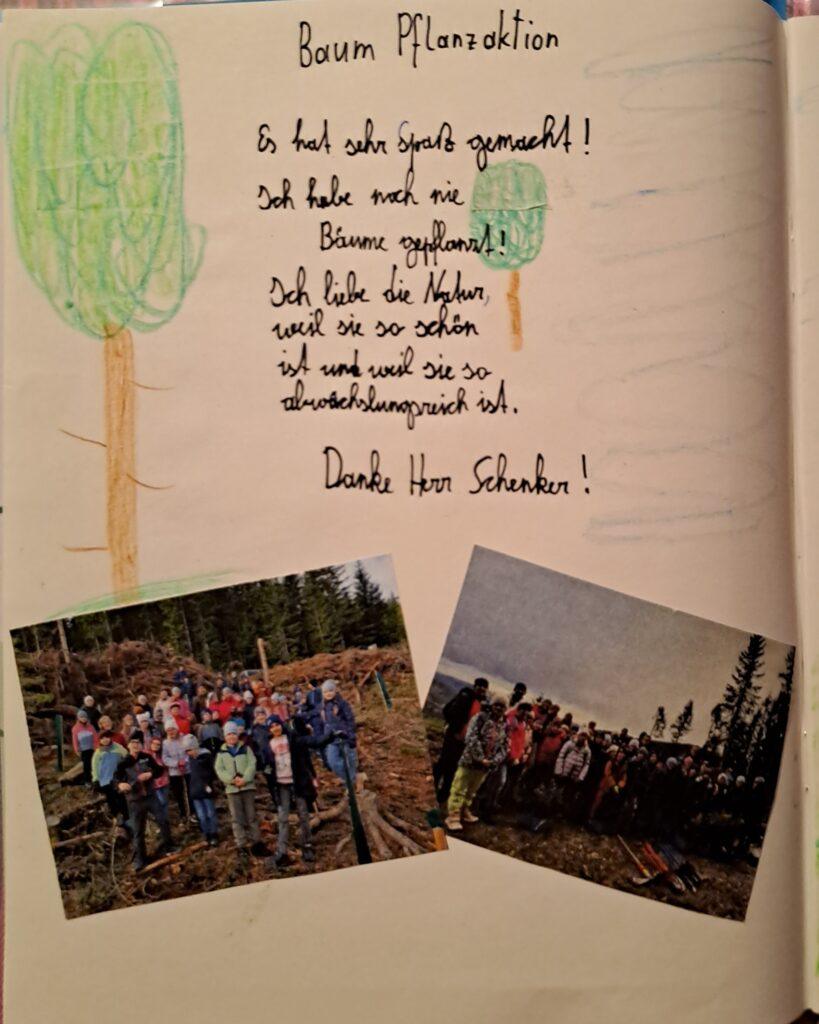 Baum Pflanzaktion
Es hat sehr Spaß gemacht!
Ich habe noch nie
Bäume gepflanzt!
Ich liebe die Natur,
weil sie so schön
ist und weil sie so
abwächslungsreich ist.
Danke Herr Schenker!